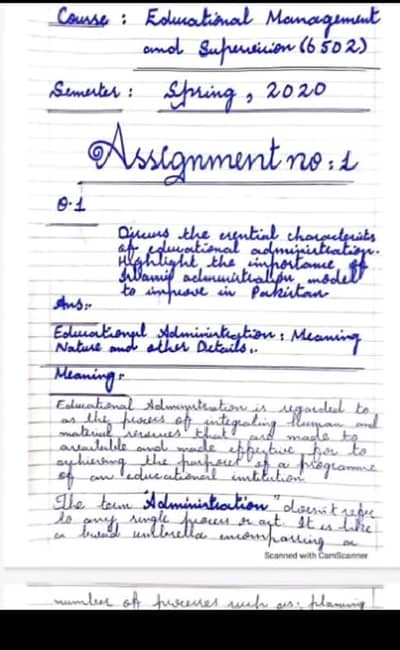 Course : Educational Management
and Supervision (6502)
Semester : Spring, 2020
Assignment no : 1
Q.1
Discuss the essential characteristics
of educational administration.
Highlight the importance of
Islamic administration model
to improve in Pakistan
Ans:-
Educational Administration : Meaning
Nature and other Details:.
Meaning:-
Educational Administration is regarded to
as the process of integrating human and
material resources that are made to
available and made effective for to
achieving the purpose of a programme
of an educational institution.
The term "Administration" doesn't refer
to any single process or act. It is like
a broad umbrella encompassing a
Scanned with CamScanner
number of processes such as: planning